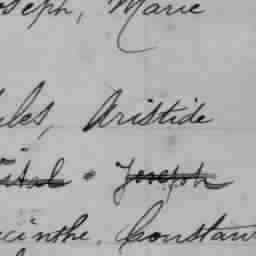 oseph, Marie
les, Aristide
ital - Joseph
cinthe, Constan